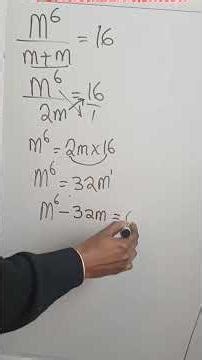 m⁶/m+m = 16
m⁶/2m = 16/1
m⁶ = 2m×16
m⁶ = 32m¹
m⁶ - 32m =